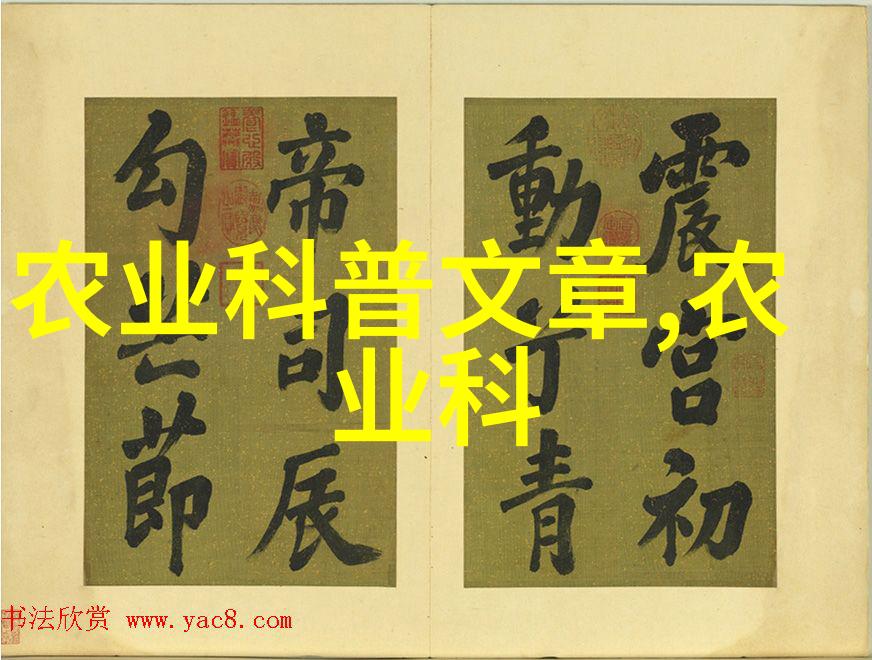 震宮初
動青
帝司辰
勾芒節
农业科普文章,农
业科
书法欣赏 www.yac8.com